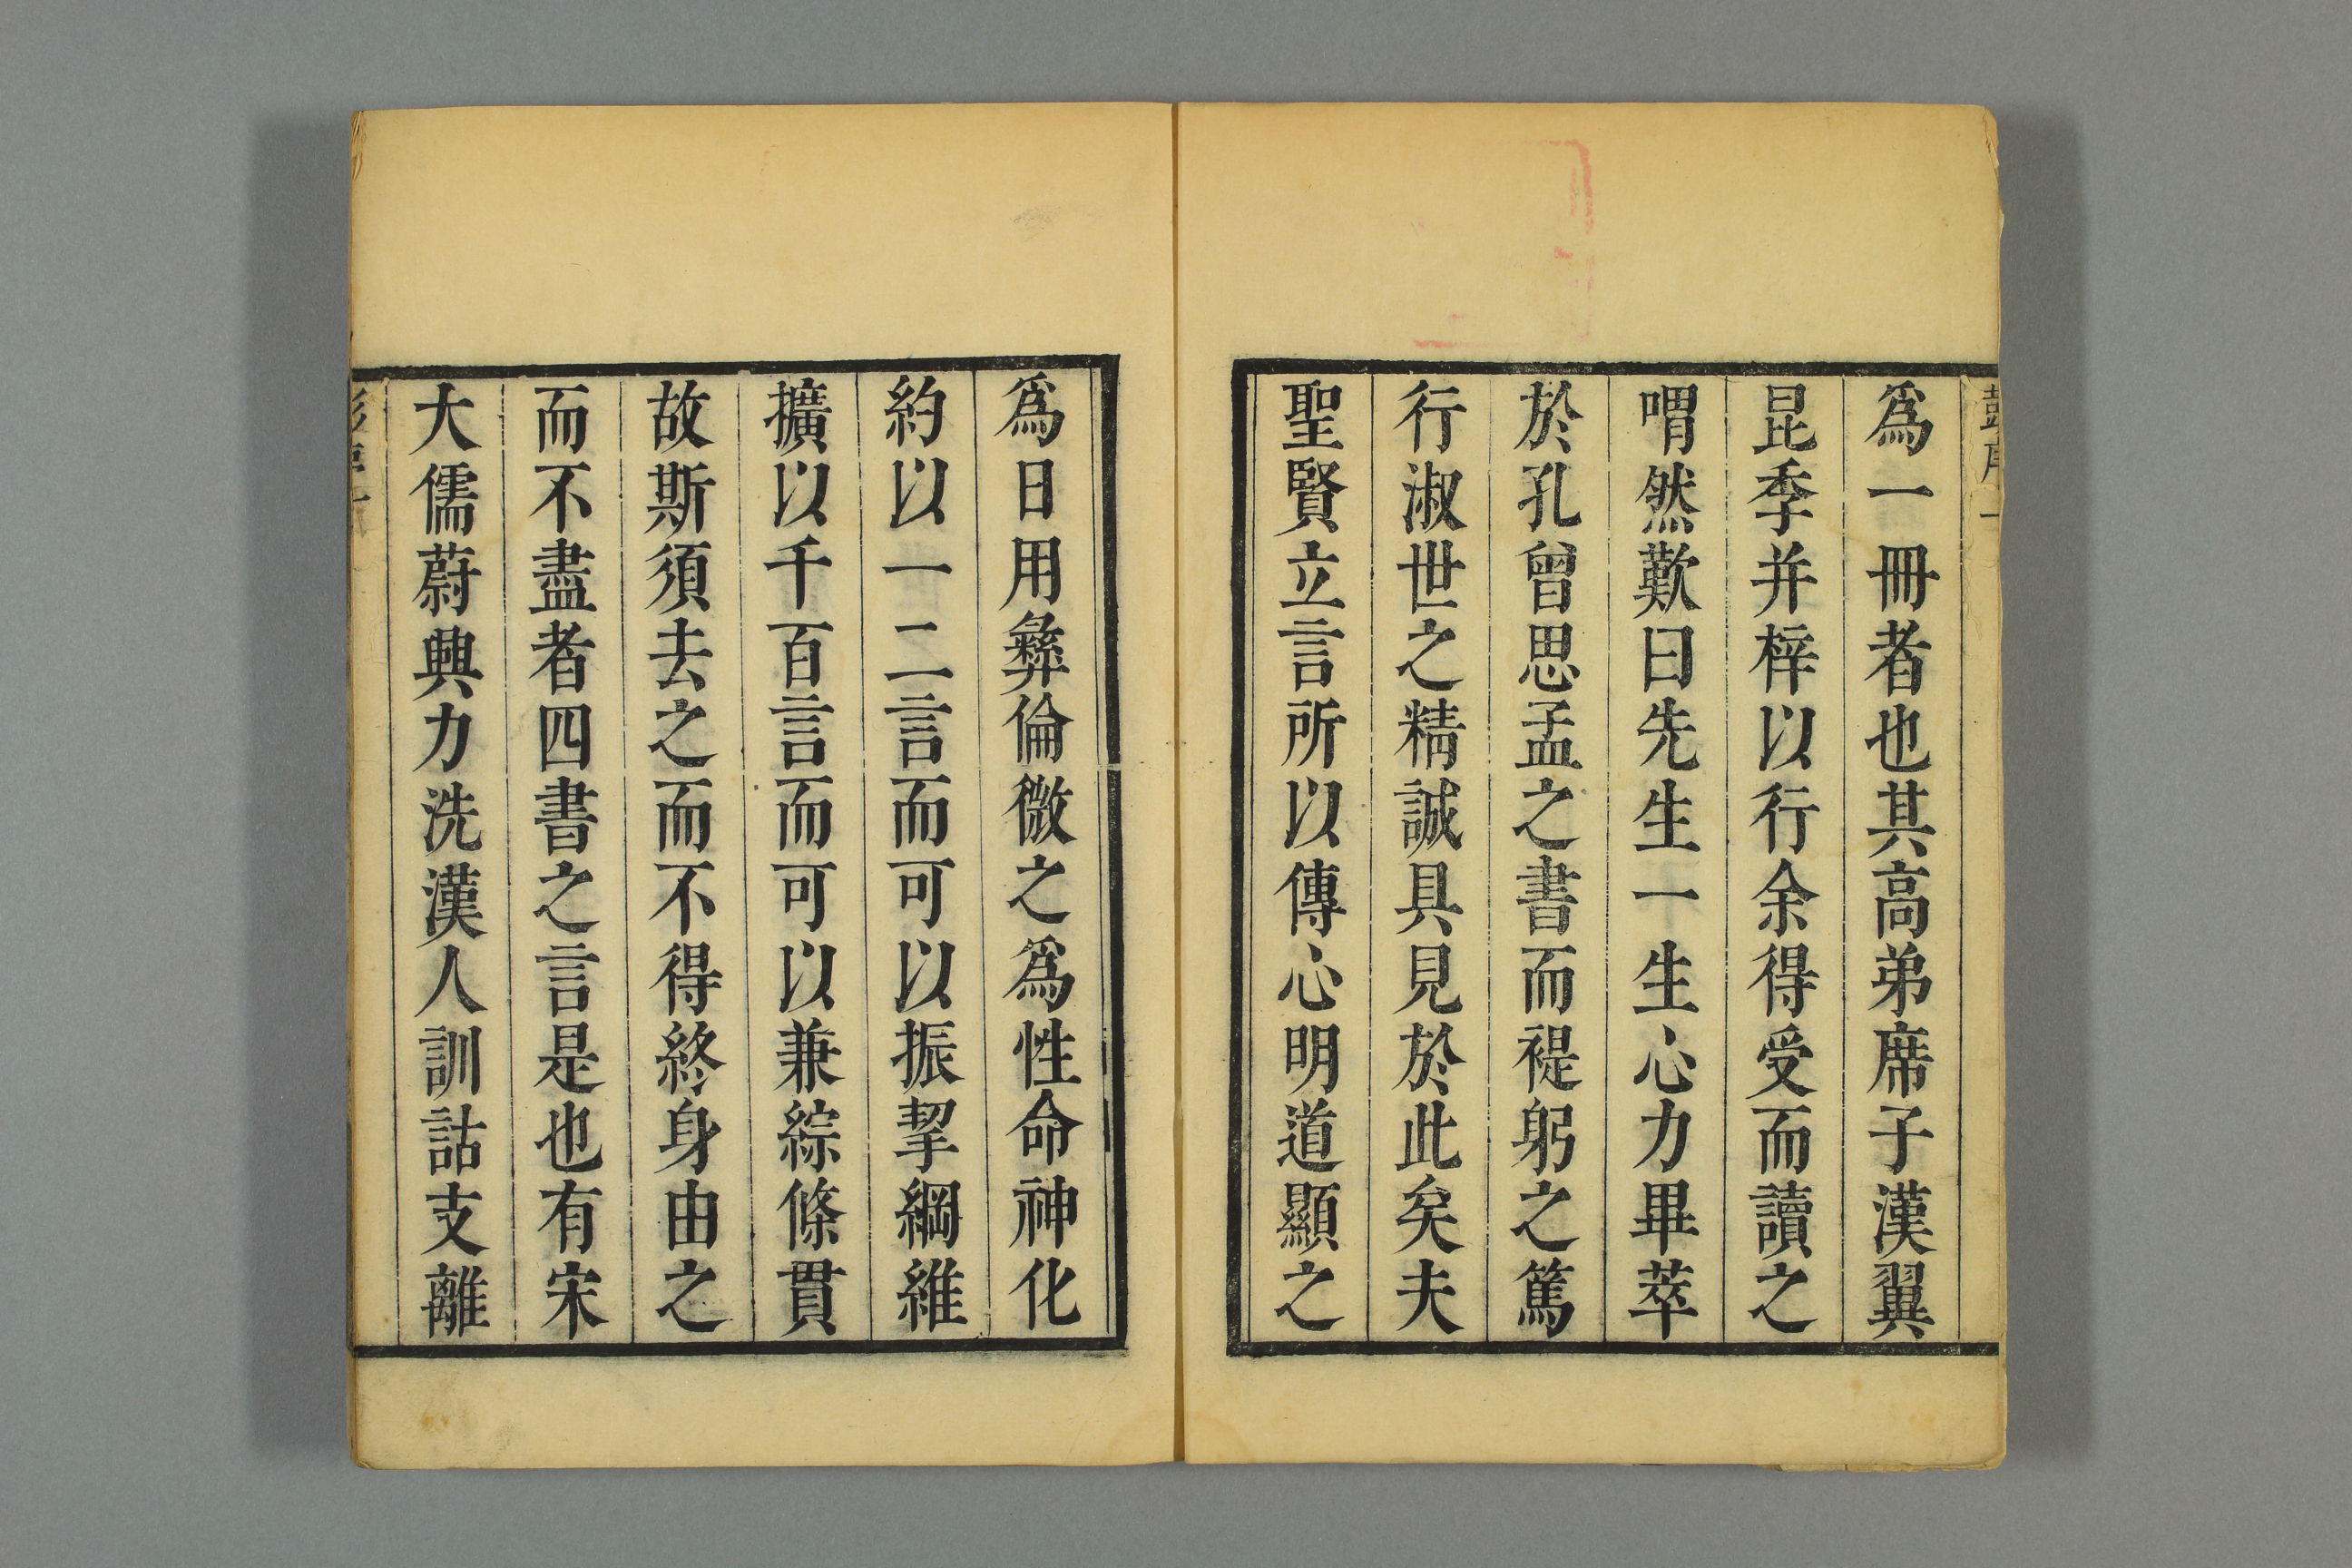 爲一冊者也其高弟席子漢翼
昆季并梓以行余得受而讀之
喟然歎曰先生一生心力畢萃
於孔曾思孟之書而禔躬之篤
行淑世之精誠具見於此矣夫
聖賢立言所以傳心明道顯之
爲日用彝倫微之爲性命神化
約以一二言而可以振挈綱維
擴以千百言而可以兼綜條貫
故斯須去之而不得終身由之
而不盡者四書之言是也有宋
大儒蔚興力洗漢人訓詁支離